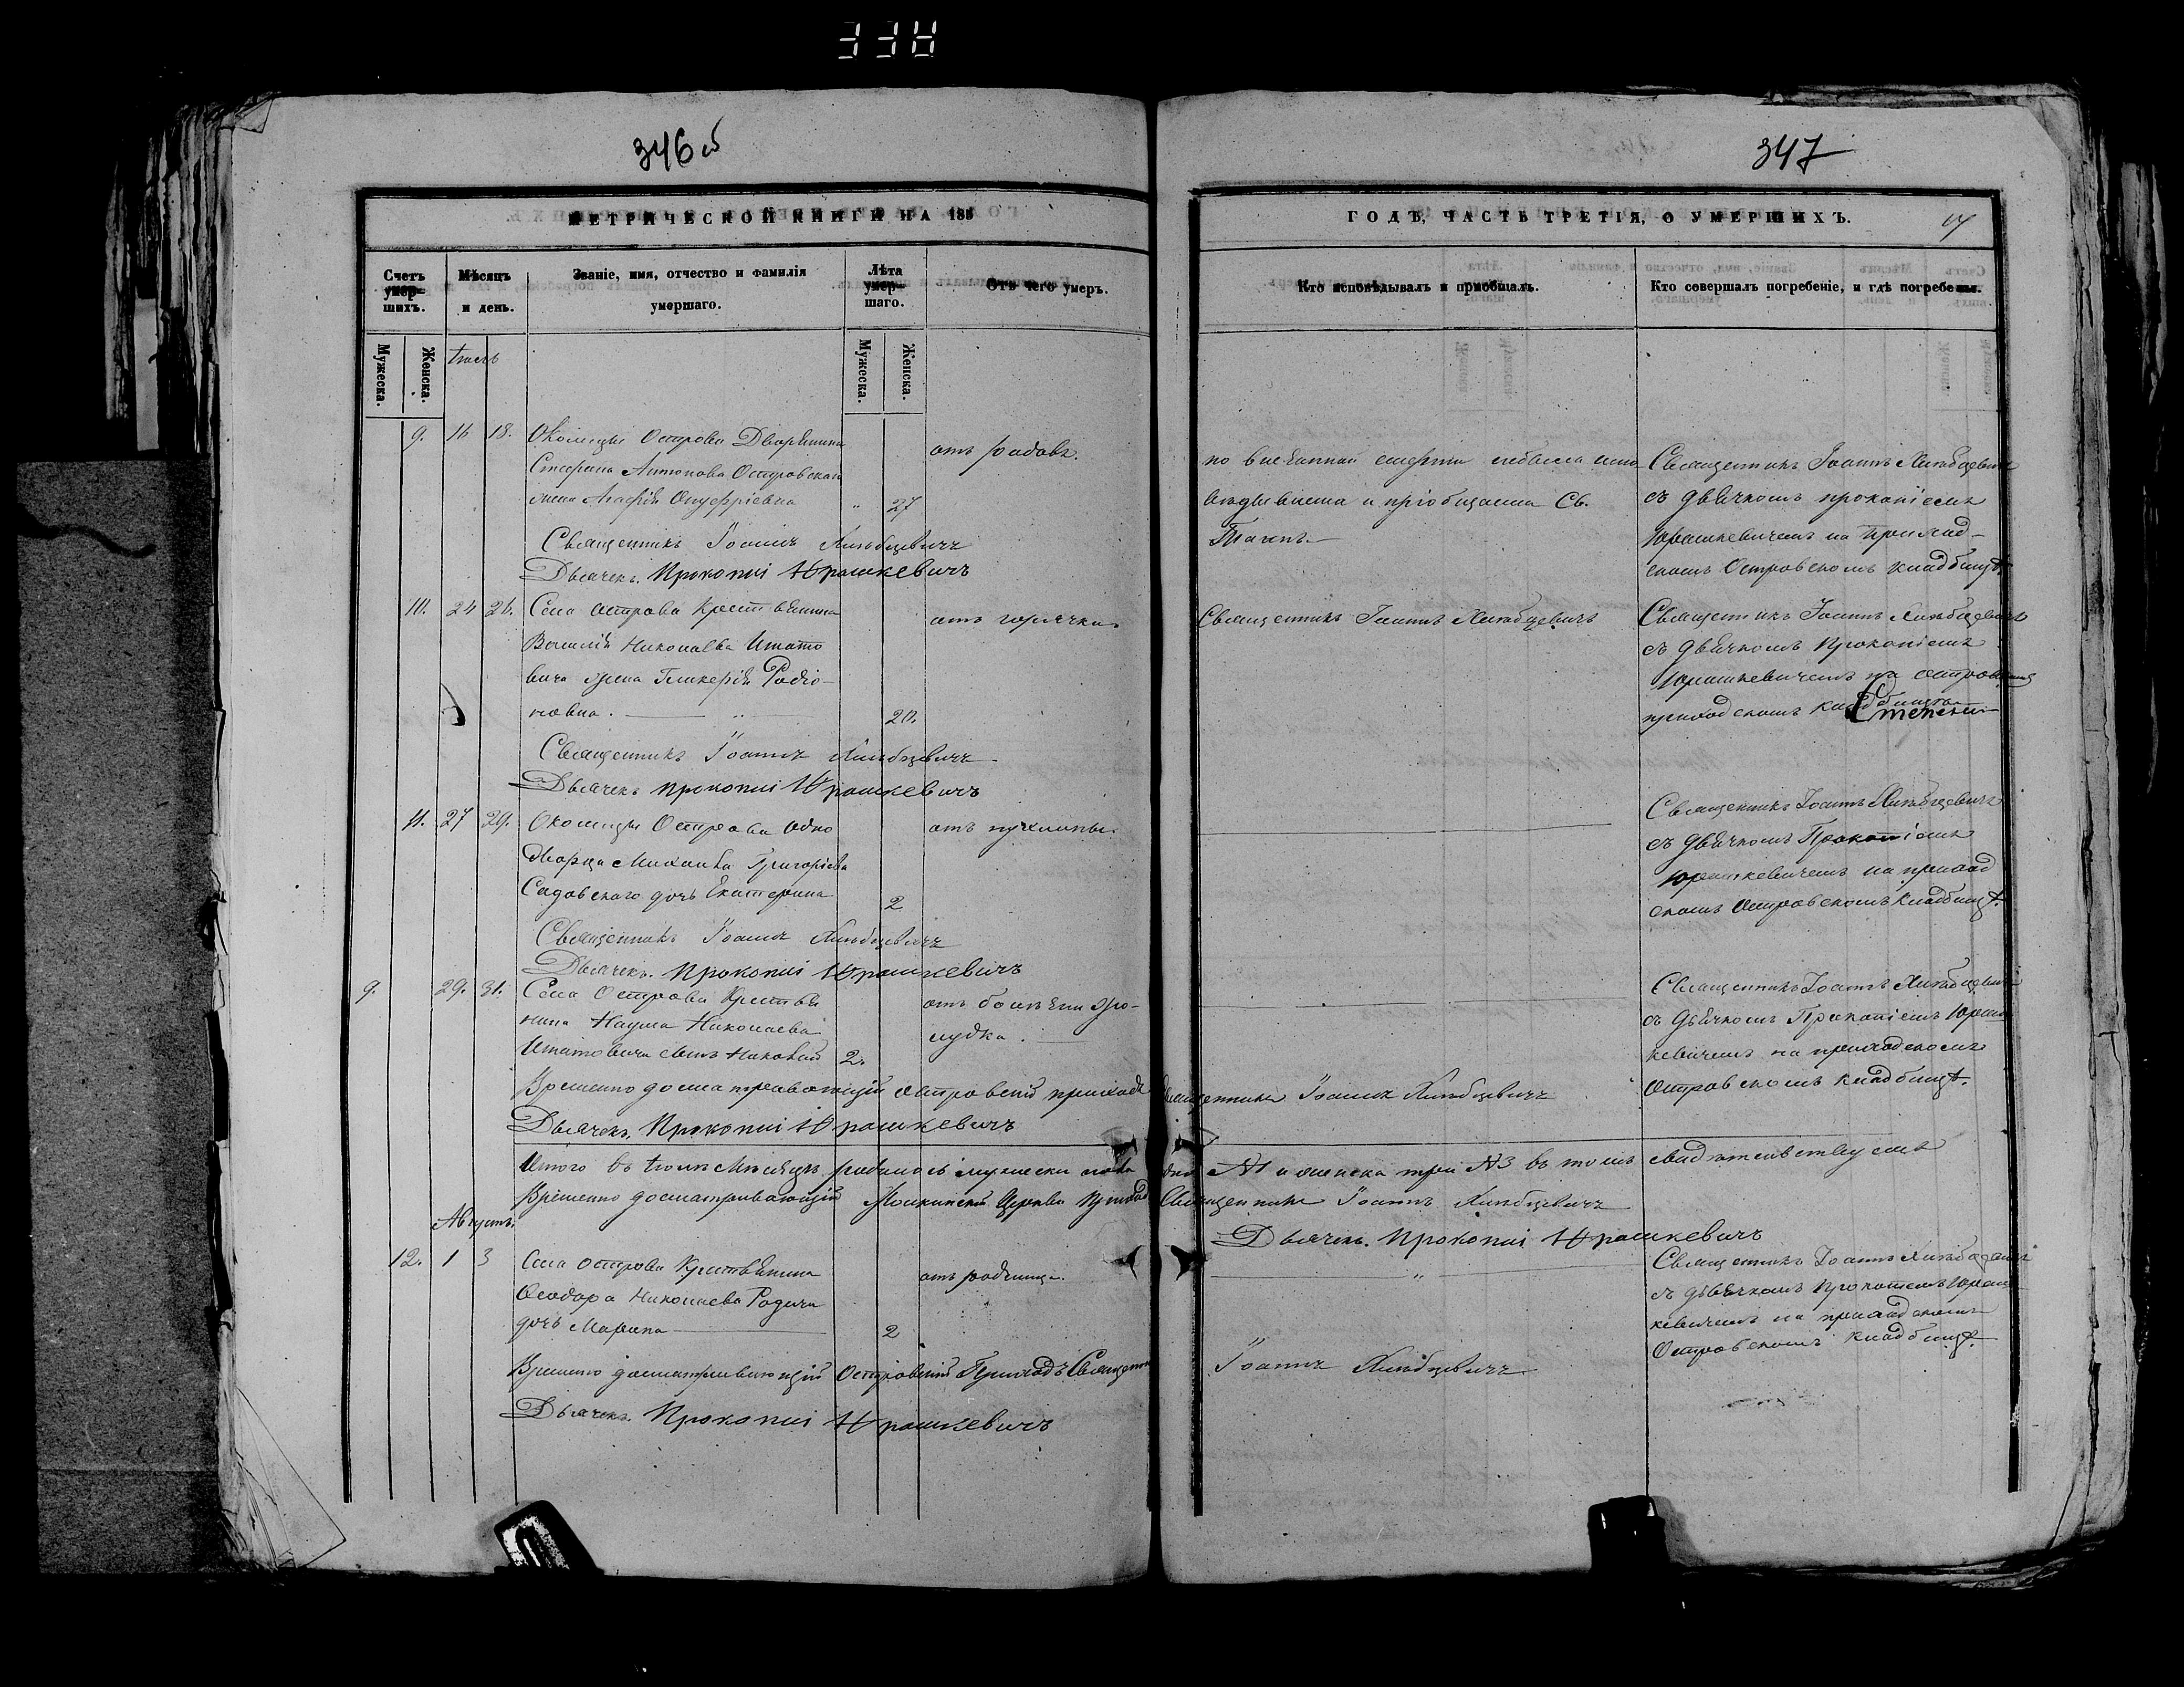 338
346 об
347
МЕТРИЧЕСКОЙ КНИГИ НА 185
ГОДЪ, ЧАСТЬ ТРЕТІЯ, О УМЕРШИХЪ.
Счетъ умер-шихъ.
Мѣсяцъ и день.
Званіе, имя, отчество и фамилія умершаго.
Лѣта умер-шаго.
Отъ чего умеръ.
Кто исповѣдывалъ и пріобщалъ.
Кто совершалъ погребеніе, и гдѣ погребены.
Мужеска.
Женска.
Мужеска.
Женска.
9. 16 18. Околицы Острова Дворянина
Стефана Антонова Островскаго
жена Агафія Онуфріевна 27
отъ родовъ.
по внезапной смерти небыла испо
вѣдывана и пріобщаема Св.
Таинъ.
Священникъ Іоаннъ
съ дьячкомъ Прокопіемъ
Юрашкевичемъ на Приход-
скомъ Островскомъ кладбищѣ.
Священникъ Іоаннъ
Дьячекъ Прокопій Юрашкевичъ
10. 24 26. Села Острова Крестьянина
Василія Николаева Игнато
вича жена Гликерія Родіо-
новна. 20.
отъ горячки.
Священникъ Іоаннъ
Священникъ Іоаннъ
съ дьячкомъ Прокопіемъ
Юрашкевичемъ на
приходскомъ кладбище
Священникъ Іоаннъ
Дьячекъ Прокопій Юрашкевичъ
11. 27 29. Околицы Острова Одно
дворца Михаила Григоріева
Садовскаго дочь Екатерина 2
отъ пухлины.
Священникъ Іоаннъ
съ дьячкомъ Прокопіемъ
Юрашкевичемъ на приход
скомъ Островскомъ кладбищѣ.
Священникъ Іоаннъ
Дьячекъ. Прокопій Юрашкевичъ
9. 29. 31. Села Острова Крестья
нина Наума Николаева
Игнатовича сынъ Николай 2.
отъ болѣзни же-
лудка.
Священникъ Іоаннъ
съ дьячкомъ Прокопіемъ Юраш
кевичемъ на приходскомъ
Островскомъ кладбищѣ.
Временно досматривающій Островскій приходъ Священникъ Іоаннъ
Дьячекъ. Прокопій Юрашкевичъ
Итого въ мужеска пола №1 и женска три №3 въ томъ свидѣтельствуемъ
Временно досматривающій Церкви Приходъ Священникъ Іоаннъ
Дьячекъ. Прокопій Юрашкевичъ
Августъ.
12. 1 3 Села Острова Крестьянина
Ѳеодора Николаева Родича
дочь Марина 2
отъ родимца.
Священникъ Іоаннъ
съ дьячкомъ Прокопіемъ Юраш
кевичемъ на приходскомъ
Островскомъ кладбищѣ.
Временно досматривающій Островскій Приходъ Священникъ Іоаннъ
Дьячекъ. Прокопій Юрашкевичъ